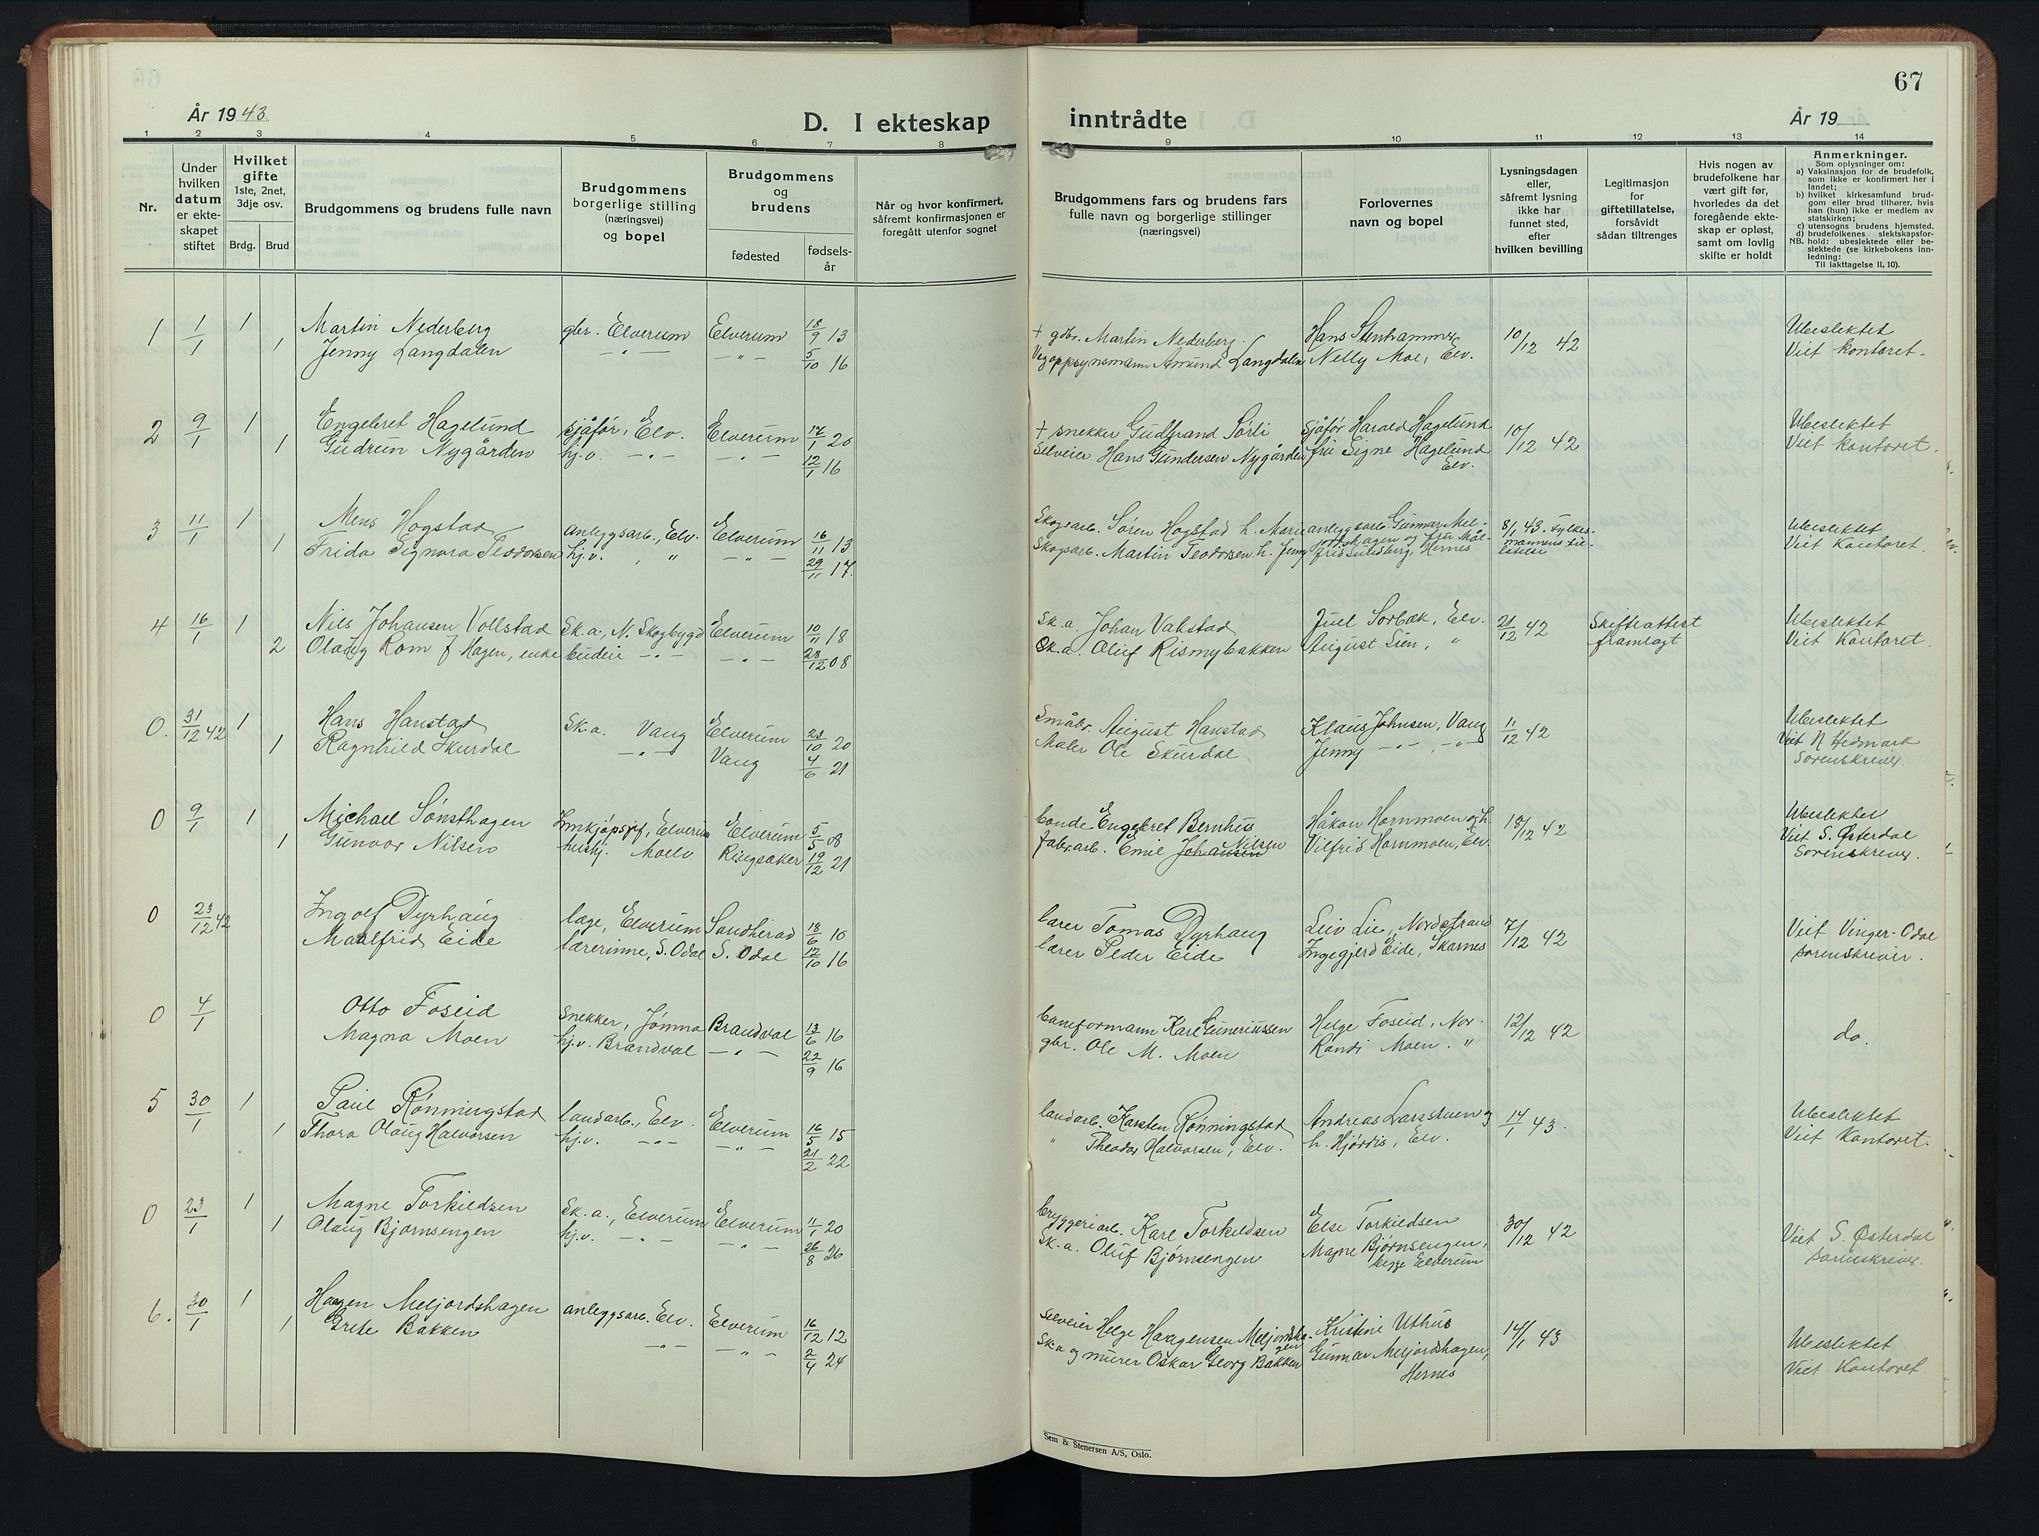 67
År 1943
D. I ekteskap inntrådte
År 19
1 2 3 4 5 6 7 8 9 10 11 12 13 14
Nr.
Under hvilken datum er ekteskapet stiftet
Hvilket gifte
1ste, 2net, 3dje osv.
Brdg. Brud
Brudgommens og brudens fulle navn
Brudgommens borgerlige stilling (næringsvei) og bopel
Brudgommens og brudens
fødested
fødselsår
Når og hvor konfirmert, såfremt konfirmasjonen er foregått utenfor sognet
Brudgommens fars og brudens fars fulle navn og borgerlige stillinger (næringsvei)
Forlovernes navn og bopel
Lysningsdagen eller, såfremt lysning ikke har funnet sted, efter hvilken bevilling
Legitimasjon for giftetillatelse, forsåvidt sådan tiltrenges
Hvis nogen av brudefolkene har vært gift før, hvorledes da det foregående ekteskap er opløst, samt om lovlig skifte er holdt
Anmerkninger.
Som oplysninger om:
a) Vaksinasjon for de brudefolk, som ikke er konfirmert her i landet;
b) hvilket kirkesamfund brudgom eller brud tilhører, hvis han (hun) ikke er medlem av statskirken;
c) utensogns brudens hjemsted.
d) brudefolkenes slektskapsforhold: ubeslektede eller beslektede (se kirkebokens innledning:
NB. Til iakttagelse II. 10).
1 1/1 1 Martin Nederberg gbr. Elverum Elverum 18/9 13 + gdbr. Martin Nederberg. Hans Stenhammer 10/12 42 Ubeslektet
1 Jenny Langdalen -"- -"- 5/10 16 Vegoppsynsmann Amund Langdalen Nelly Moe, Elv. Viet kontoret.
2 9/1 1 Engebret Hagelund sjåfør, Elv. Elverum 17/1 20 + snekker Gudbrand Sørli sjåfør Harald Hagelund 10/12 42 Ubeslektet
1 Gudrun Nygården hj.v. -"- -"- 12/1 16 Selveier Hans Gundersen Nygården fru Signe Hagelund Elv. Viet kontoret.
3 11/1 1 Mens Hogstad anleggsarb., Elv. Elverum 16/11 13 Skogsarb. Søren Hogstad h. Marie anleggsarb. Gunnar Mel- 8/1 43. Fylkes- Ubeslektet
1 Frida Signora Teodorsen hj.v. " -"- 29/11 17. Skogsarb. Martin Teodorsen h. Jenny jordshagen og fru Mål- frid Sundberg, Hernes mannens til- latelse Viet Kontoret.
4 16/1 1 Nils Johansen Vollstad Sk.a., N. Skogbygd Elverum 10/11 18 Sk.a. Johan Valstad Juel Sorbak, Elv. 21/12 42 Skifteattest Ubeslektet
2 Olaug Rom f. Hagen, enke budeie -"- -"- 28/12 08 Sk.a. Oluf Rismybakken August Lien, " framlagt Viet Kontoret.
0. 31/12 42 1 Hans Hanstad Sk.a. Vang Elverum 23/10 20 Småbr. August Hanstad Klaus Johnsen, Vang 11/12 42 Ubeslektet
1 Ragnhild Skurdal -"- Vang 4/6 21 Maler Ole Skurdal. Jenny -"- , -"- Viet N Hedmark Sorenskriver.
0 9/1 1 Michael Sønsthagen Innkjøpssjef, Elverum Elverum 5/5 08 bonde Engebret Bernhus Håkon Hornmoen og h. 18/12 42 Ubeslektet
1 Gunvor Nilsen hushj. Moelv Ringsaker 19/12 21 Fabr.arb. Emil Johansen Nilsen Vilfrid Hornmoen, Elv. Viet S. Østerdal Sorenskriver.
0 23/12 42 Ingolf Dyrhaug læge, Elverum Sandherad 18/6 10 lærer Tomas Dyrhaug Leiv Lie, Nordstrand 7/12 42 Viet Vinger-Odal
Maalfrid Eide lærerinne, S. Odal S. Odal 12/10 16 lærer Peder Eide Ingegjerd Eide, Skarnes sorenskriver.
0 4/1 Otto Foseid snekker, Jømna Brandval 13/6 16 baneformann Karl Guneriussen Helge Foseid, Nor- 12/12 42 do.
Magna Moen hj.v. Brandval -"- 22/9 16 gbr. Ole M. Moen Randi Moen. "
5 30/1 1 Paul Rønningstad landarb., Elv. Elverum 16/5 15 landarb. Karsten Rønningstad Andreas Larsstuen og 14/1 43. Ubeslektet
1 Thora Olaug Halvorsen hj.v. -"- -"- 21/2 22 " Theodor Halvorsen, Elv. h. Hjørdis, Elv. Viet Kontoret.
0 23/1 1 Magne Torkildsen Sk.a., Elverum Elverum 11/1 20 bryggeriarb. Karl Torkildsen Else Torkildsen 30/12 42 Viet S. Østerdal
1 Olaug Bjørnsengen hj.v. -"- -"- 26/8 26 Sk.a. Oluf Bjørnsengen Magne Bjørnsengen, begge Elverum sorenskriver.
6. 30/1 1 Haagen Meljordshagen anleggsarb. Elv. Elverum 16/12 12 selveier Helge Haagensen Meljordshagen Kristine Uthus 14/1 43 Ubeslektet
1 Grete Bakken -"- -"- 2/4 24 Sk.a og murer Oskar Georg Bakken Gunnar Meljordshagen, Hernes Viet Kontoret.
Sem & Stenersen A/S, Oslo.